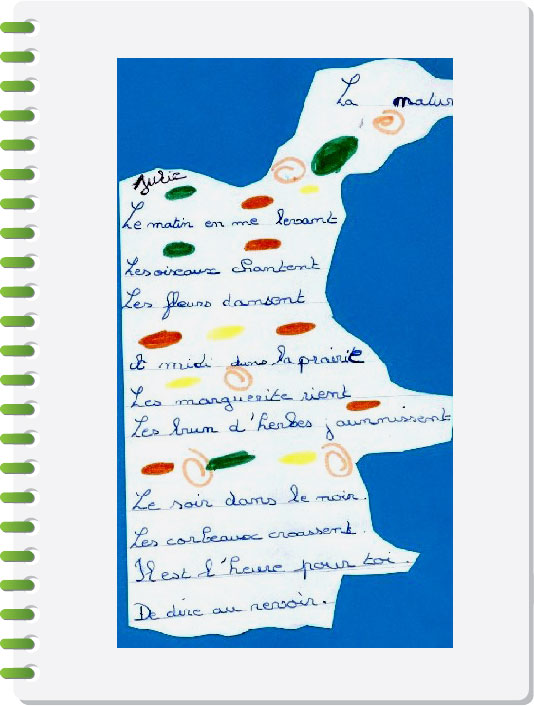 La natur
Julie
Le matin en me levant
Les oiseaux chantent
Les fleurs dansent
A midi dans la prairie
Les marguerite rient
Les brun d'herbes jaunnissent
Le soir dans le noir.
Les corbeaux croassent.
Il est l'heure pour toi.
De dire au revoir.